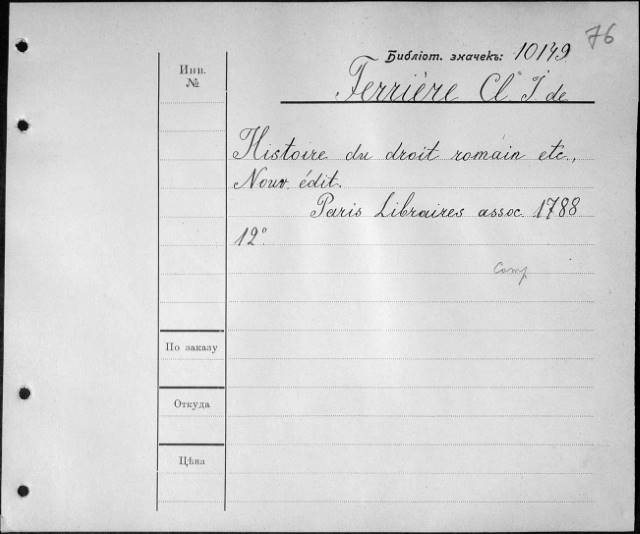 76
Библіот. значекъ: 10149
Ferrière Cl. J. de
Инв.
№
Histoire du droit romain etc.,
Nouv. édit.
Paris Libraires assoc. 1788
12°
comp
По заказу
Откуда
Цѣна